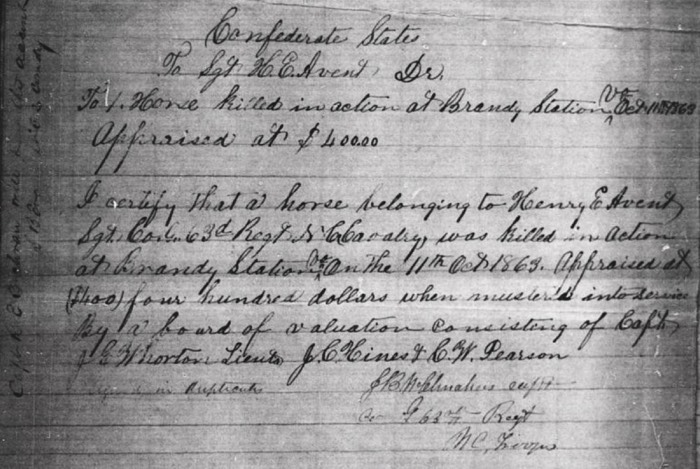 Confederate States
To Sgt H. E. Avent, Dr.
To 1. Horse killed in action at Brandy Station Va Oct 11th 1863
Appraised at $400.00
I certify that a horse belonging to Henry E Avent,
Sgt. Co. 63d Regt N C Cavalry, was killed in action
at Brandy Station Va On the 11th Oct 1863. Appraised at
($400) four hundred dollars when muster'd into service
By a board of valuation consisting of Capt,
J E Whorton Lieuts J. C. Hines & C. W. Pearson
in duplicate
capt
Co 63rd Regt
N C, Troops